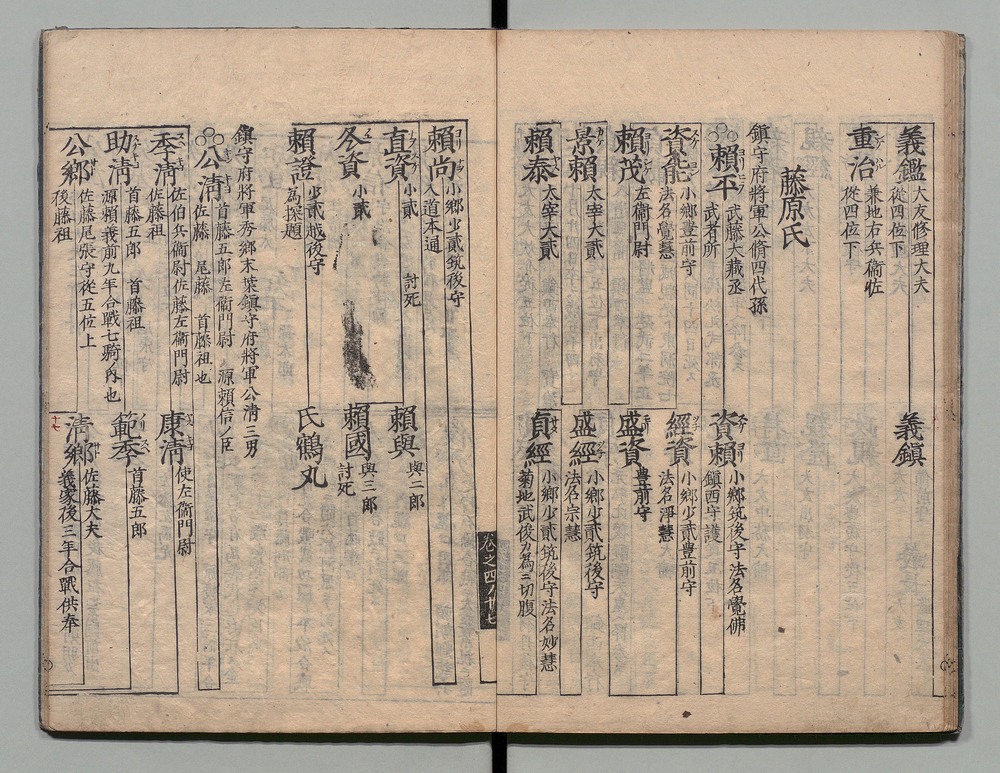 義鑑 大友修理大夫
從四位下
義鎮
重治 兼地右兵衞佐
從四位下
藤原氏
鎮守府將軍公脩四代孫
頼平 武藤大藏丞
武者所
資頼 小鄉筑後守法名覺佛
鎮西守護
資能 小鄉豊前守
法名覺慧
經資 小鄉少貳豊前守
法名淨慧
頼茂 左衞門尉
盛資 豊前守
景頼 太宰大貳
盛經 小鄉少貳筑後守
法名宗慧
頼泰 太宰大貳
貞經 小鄉少貳筑後守法名妙慧
菊地武俊カ為ニ切腹
卷之四ノ廿七
頼尚 小鄉少貳筑後守
入道本通
直資 小貳 討死
頼與 與二郎
冬資 小貳
頼國 與三郎
討死
頼證 少貳越後守
為探題
氏鶴丸
鎮守府將軍秀鄉末葉鎮守府將軍公淸三男
公淸 首藤五郎左衞門尉 源頼信ノ臣
佐藤 尾藤 首藤祖也
季淸 佐伯兵衞尉佐藤左衞門尉
佐藤祖
康淸 使左衞門尉
助淸 首藤五郎 首藤祖
源頼義前九年合戰七騎ノ內也
範季 首藤五郎
公鄉 佐藤尾張守從五位上
後藤祖
淸鄉 佐藤大夫
義家後三年合戰供奉